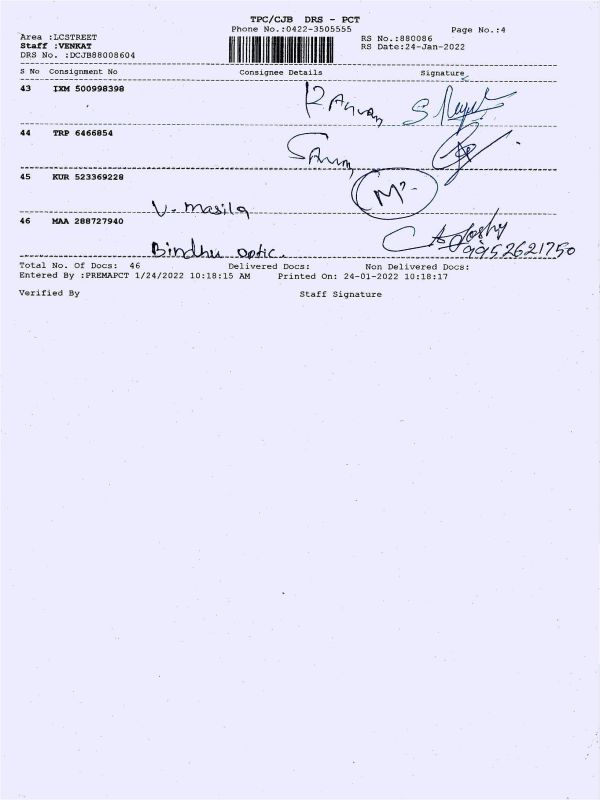 TPC/CJB DRS - PCT
Phone No.:0422-3505555 Page No.:4
Area :LCSTREET RS No.:880086
Staff :VENKAT RS Date:24-Jan-2022
DRS No. :DCJB88008604
S No Consignment No Consignee Details Signature
43 IXM 500998398
44 TRP 6466854
45 KUR 523369228
V. Masila
46 MAA 288727940
Bindhu optic. 9952621750
Total No. Of Docs: 46 Delivered Docs: Non Delivered Docs:
Entered By :PREMAPCT 1/24/2022 10:18:15 AM Printed On: 24-01-2022 10:18:17
Verified By Staff Signature